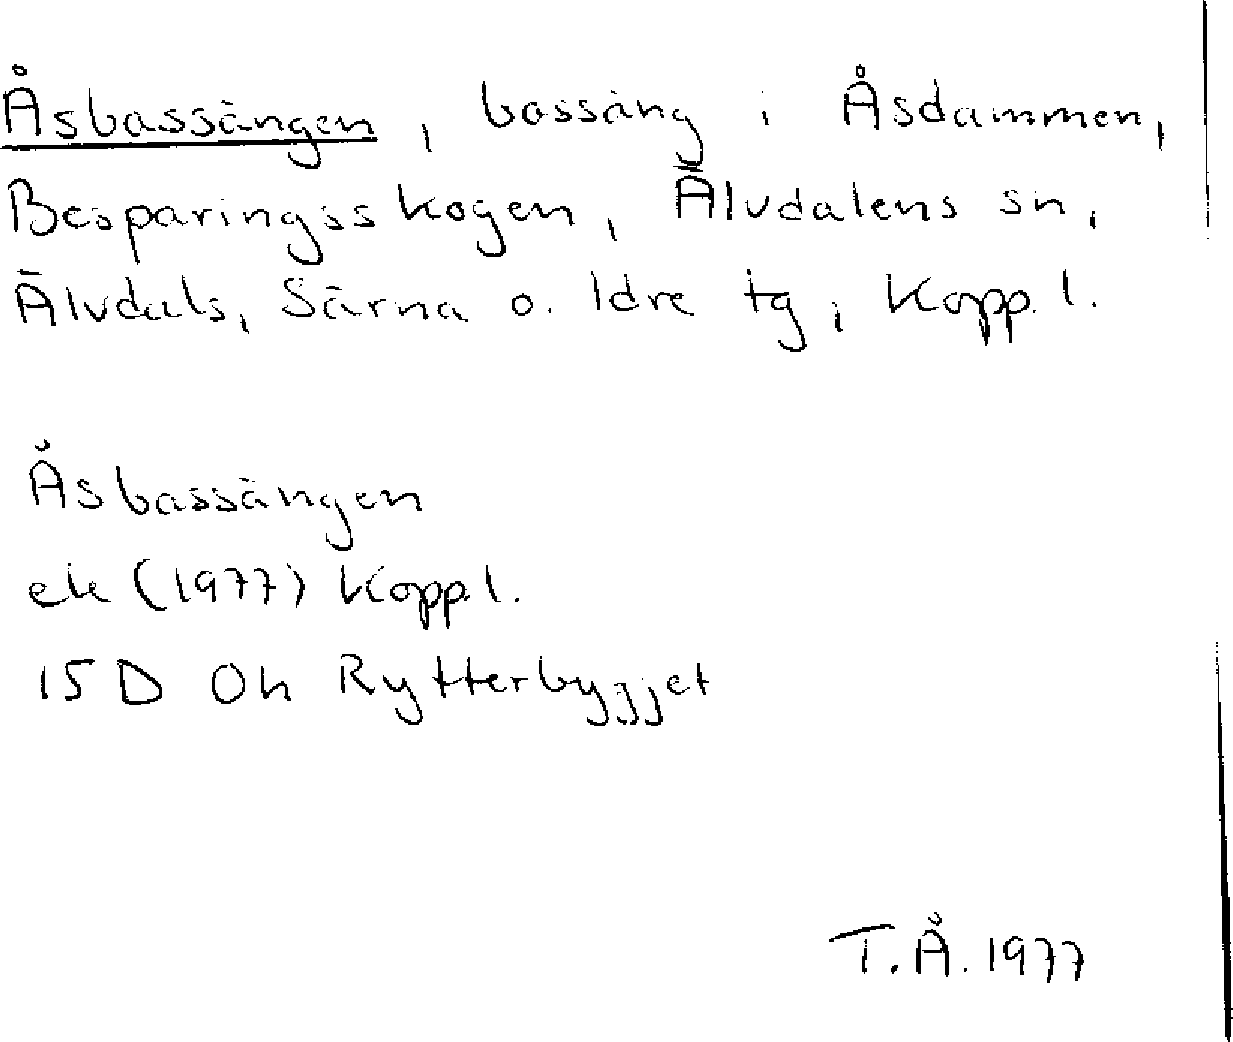 Åsbassängen, bassäng i Åsdammen,
Besparingsskogen, Älvdalens sn,
Älvdals, Särna o. Idre tg, Kopp. l.
Åsbassängen
ek (1977) Kopp. l.
15 D 0h Rytterbyggjet
T.Å. 1977